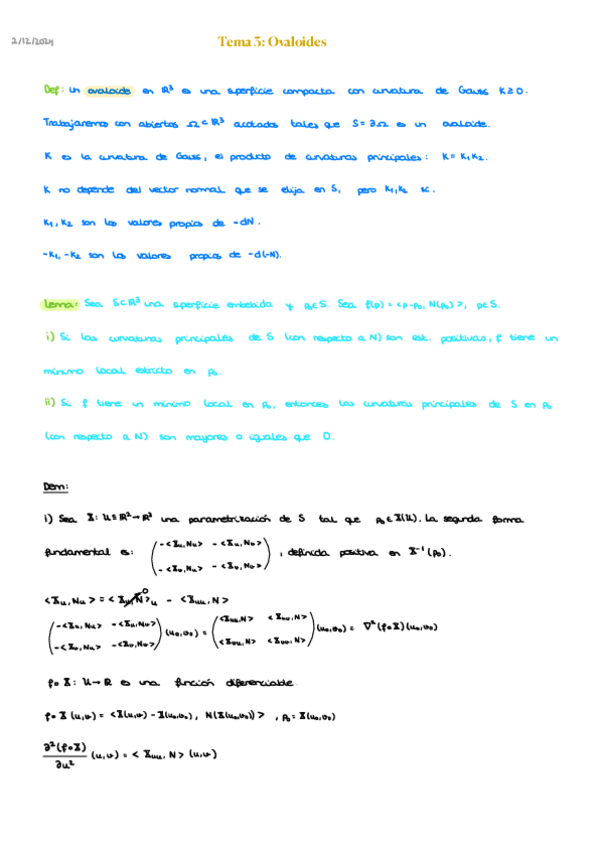 2/12/2024
Tema 3: Ovaloides
Def: Un ovaloide en ℝ³ es una superficie compacta con curvatura de Gauss K≥0.
Trabajaremos con abiertos Ω⊂ℝ³ acotados tales que S=∂Ω es un ovaloide.
K es la curvatura de Gauss, el producto de curvaturas principales: K=K₁K₂.
K no depende del vector normal que se elija en S, pero K₁,K₂ sí.
K₁, K₂ son los valores propios de -dN.
-K₁, -K₂ son los valores propios de -d(-N).
Lema: Sea S⊂ℝ³ una superficie embebida y p₀∈S. Sea f(p)=<p-p₀, N(p₀)>, p∈S.
i) Si las curvaturas principales de S (con respecto a N) son est. positivas, f tiene un
mínimo local estricto en p₀.
ii) Si f tiene un mínimo local en p₀, entonces las curvaturas principales de S en p₀
(con respecto a N) son mayores o iguales que 0.
Dem:
i) Sea X: U⊆ℝ²→ℝ³ una parametrización de S tal que p₀∈X(U). La segunda forma
fundamental es: (-<Xᵤ,Nᵤ> -<Xᵤ,Nᵥ> / -<Xᵥ,Nᵤ> -<Xᵥ,Nᵥ>), definida positiva en X⁻¹(p₀).
<Xᵤ,Nᵤ> = <Xᵤ,N>ᵤ⁰ - <Xᵤᵤ,N>
(-<Xᵤ,Nᵤ> -<Xᵤ,Nᵥ> / -<Xᵥ,Nᵤ> -<Xᵥ,Nᵥ>)(u₀,v₀) = (<Xᵤᵤ,N> <Xᵤᵥ,N> / <Xᵥᵤ,N> <Xᵥᵥ,N>)(u₀,v₀) = ∇²(f∘X)(u₀,v₀)
f∘X: U→ℝ es una función diferenciable.
f∘X(u,v) = <X(u,v)-X(u₀,v₀), N(X(u₀,v₀))>, p₀=X(u₀,v₀)
∂²(f∘X)/∂u² (u,v) = <Xᵤᵤ,N>(u,v)